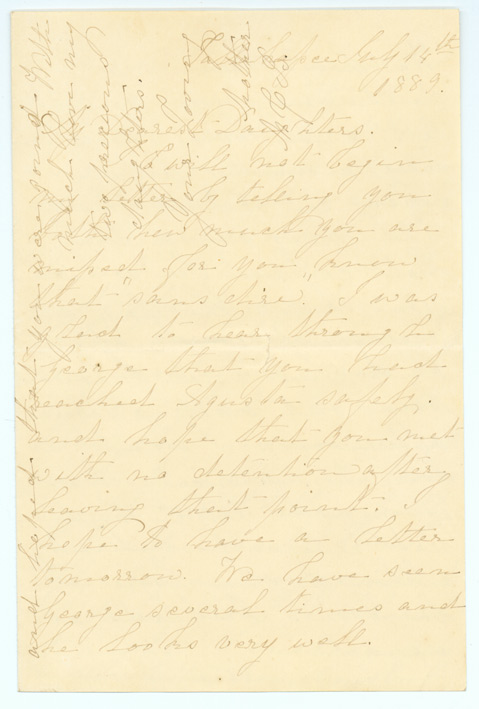 July 14th
1889.
My dearest Daughters.
I will not begin
my letter by telling you
both how much you are
missed for you know
that "sans dire." I was
glad to hear through
George that you had
reached Agusta safely.
and hope that you met
with no detention after
leaving that point. I
hope to have a letter
tomorrow. We have seen
George several times and
he looks very well.
and hoped that you were going. With
much love my
two precious
daughters.
Your loving
Mother